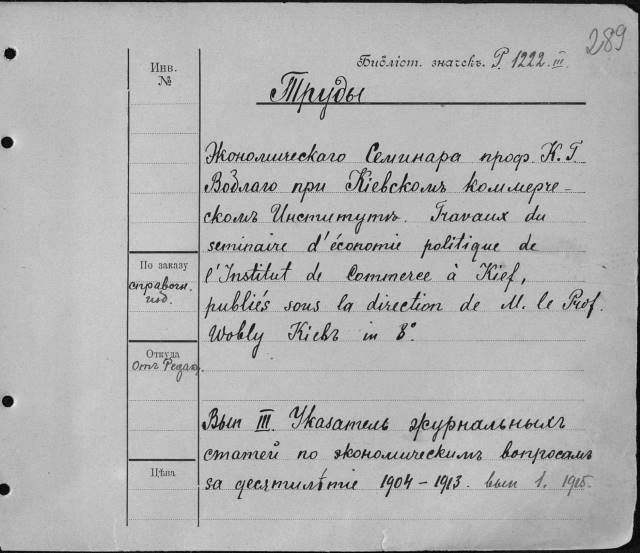 289
Библіот. значекъ. Р. 1222. III.
Инв.
№
Труды
Экономическаго Семинара проф. К. Г.
Воблаго при Кіевскомъ коммерче-
скомъ Институтѣ. Travaux du
seminaire d'économie politique de
По заказу
l'Institut de Commerce à Kief,
справочн.
изд.
publiés sous la direction de M. le Prof.
Wobly Kiebъ in 8°.
Откуда
Отъ Редакц.
Вып III. Указатель журнальныхъ
статей по экономическимъ вопросамъ
Цѣна
за десятилѣтіе 1904–1913. вып 1. 1915.